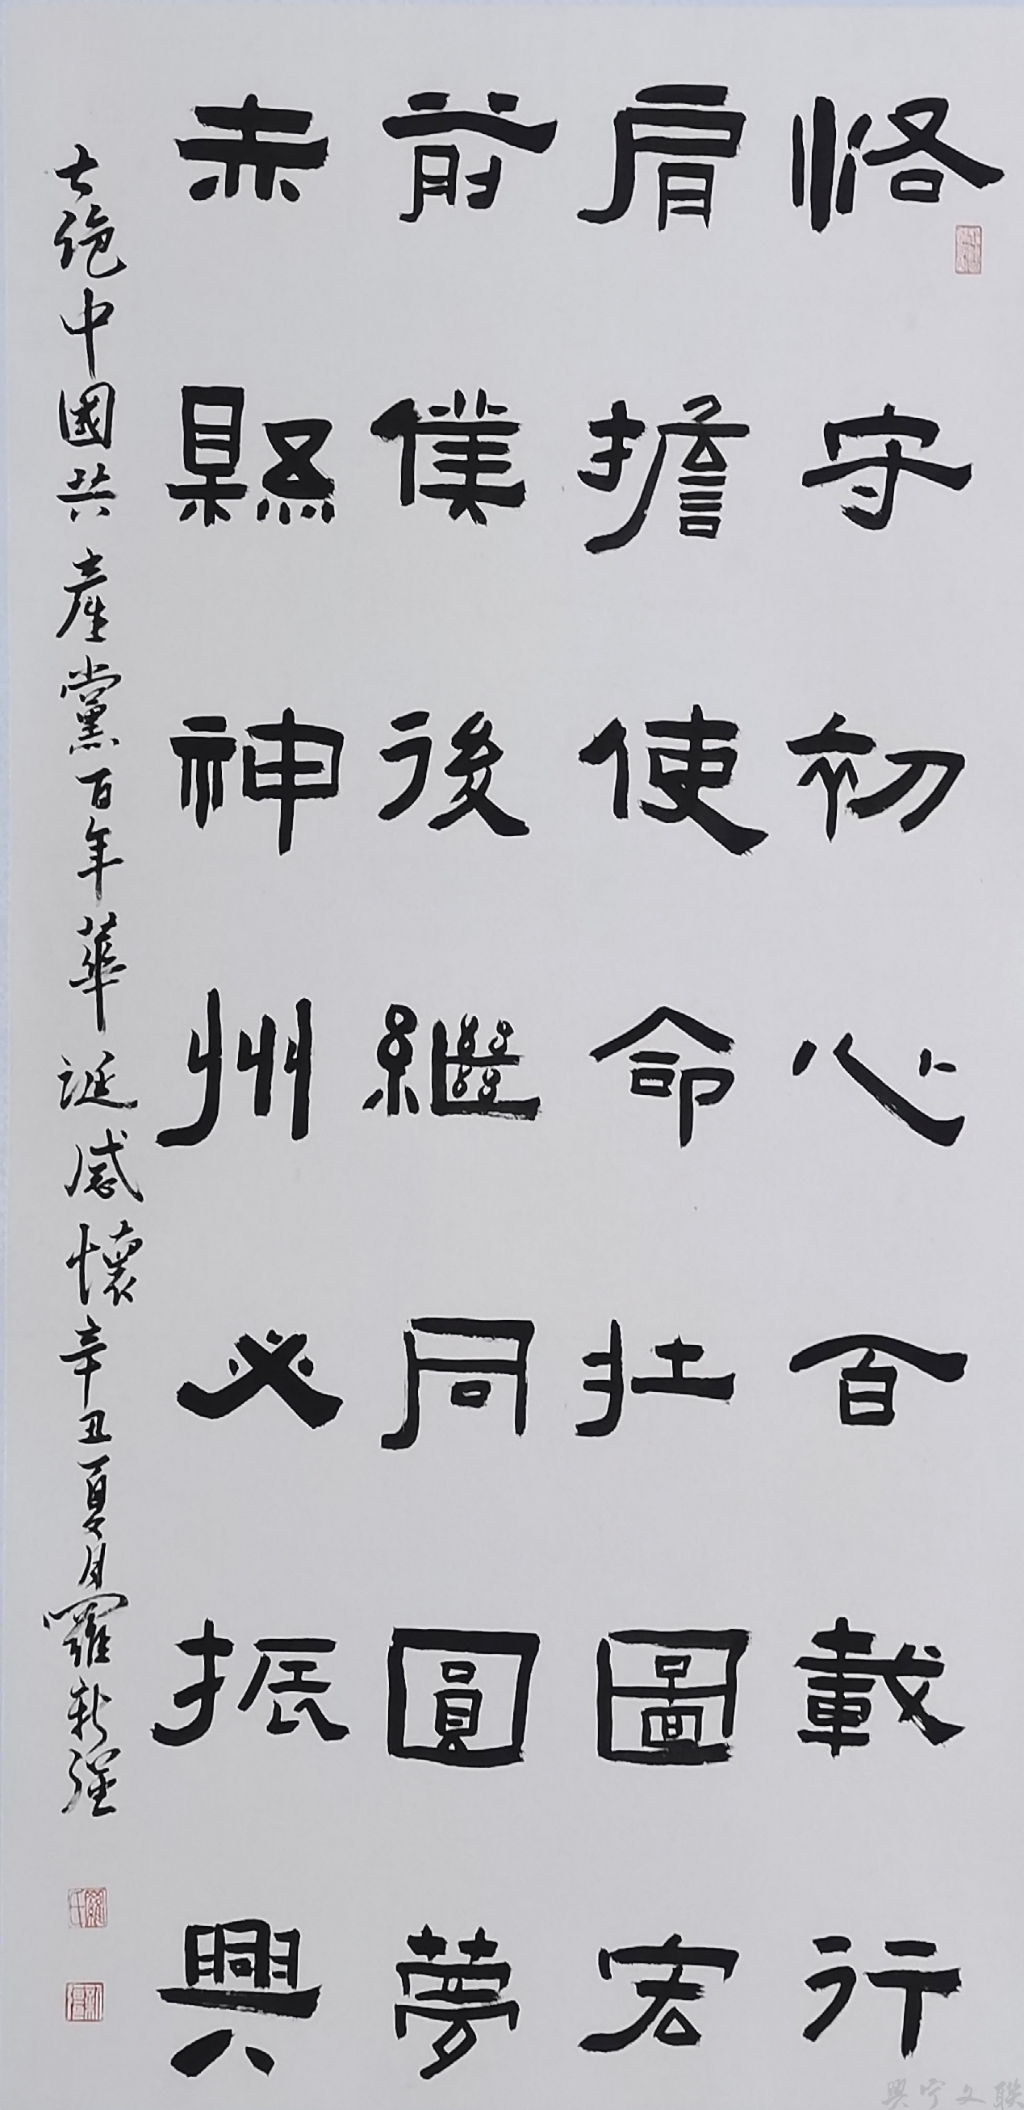 恪守初心百載行
肩擔使命壯圖宏
前僕後繼同圓夢
赤縣神州必振興
七絶中國共産黨百年華誕感懷辛丑夏月羅新强
興宁文联